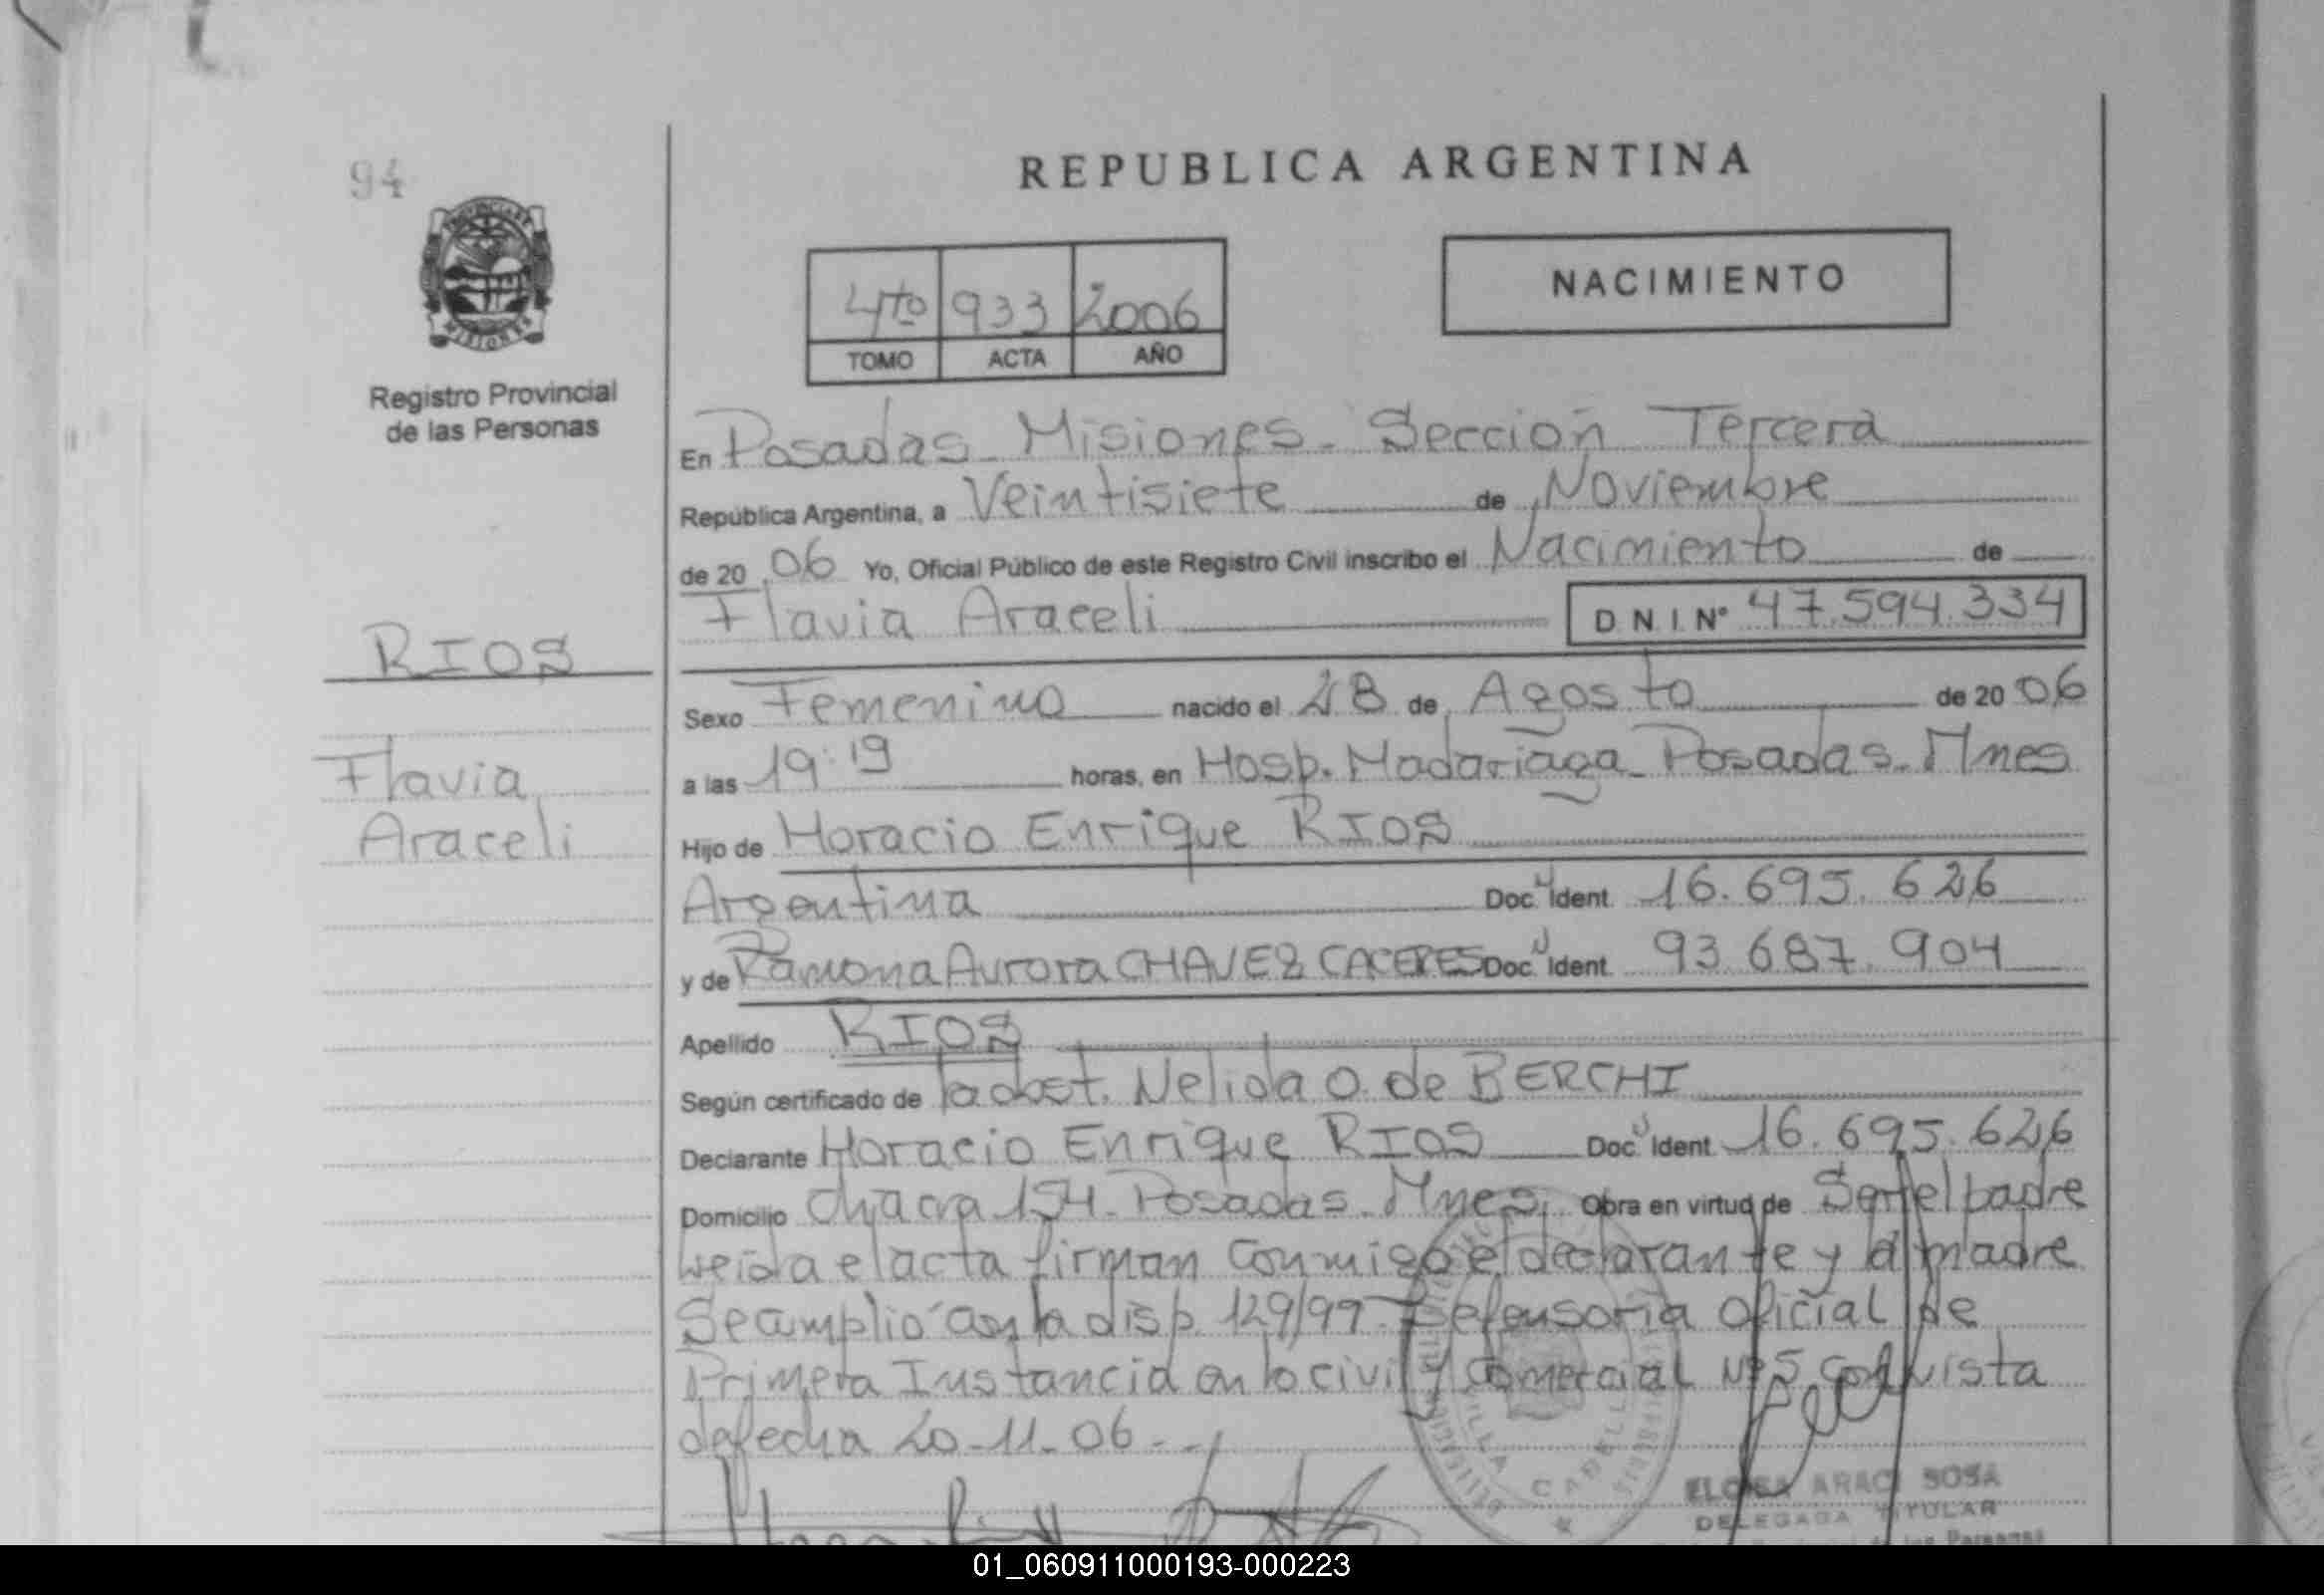 94
REPUBLICA ARGENTINA
PROVINCIA DE
MISIONES
Registro Provincial
de las Personas
4to 933 2006
TOMO ACTA AÑO
NACIMIENTO
En Posadas - Misiones - Sección Tercera
República Argentina, a Veintisiete de Noviembre
de 20 06 Yo, Oficial Público de este Registro Civil inscribo el Nacimiento de
Flavia Araceli D N I Nº 47.594.334
RIOS
Flavia
Araceli
Sexo Femenino nacido el 28 de Agosto de 20 06
a las 19:19 horas, en Hosp. Madariaga - Posadas - Mnes
Hijo de Horacio Enrique RIOS
Argentina Doc. Ident. 16.695.626
y de Ramona Aurora CHAVEZ CACERES Doc. Ident. 93.687.904
Apellido RIOS
Según certificado de la obst. Nelida O. de BERCHI
Declarante Horacio Enrique RIOS Doc. Ident. 16.695.626
Domicilio Chacra 154 - Posadas - Mnes. Obra en virtud de Ser el padre
Leida el acta firman conmigo el declarante y la madre
Se amplió con la disp. 129/99 - Defensoria Oficial de
Primera Instancia en lo civil y Comercial Nº 5 con vista
de fecha 20-11-06 - -
ELOISA ARACI SOSA
DELEGADA TITULAR
de las Personas
01_060911000193-000223